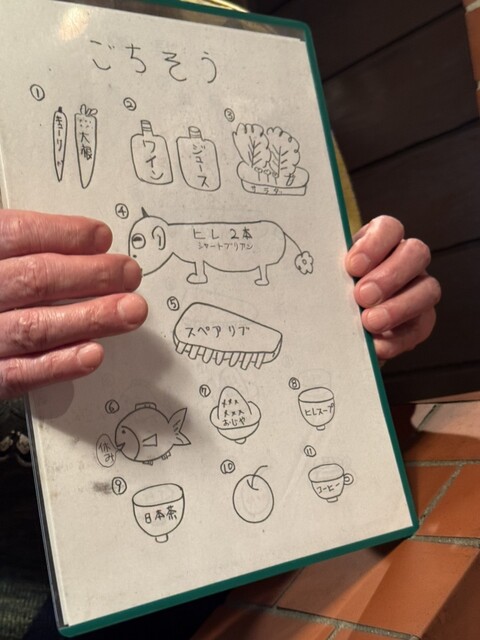 ごちそう
① キューリ 大根
② ワイン ジュース
③ サラダ
④ ヒレ2本
シャートブリアン
⑤ スペアリブ
⑥ 休み
⑦ おじや
⑧ ヒレスープ
⑨ 日本茶
⑩
⑪ コーヒー